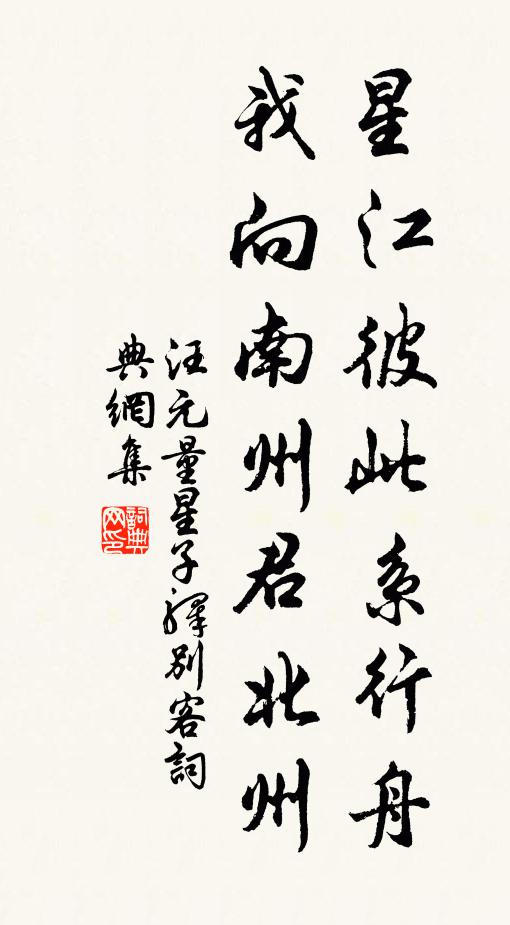 星江彼此系行舟
我向南州君北州
汪元量星子驛別客詞
典網集
詞典网印